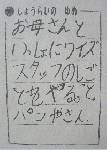 しょうらいの ゆめ
お母さんと
いっしょにワイズ
スタッフのしご
とをやること。
パンやさん。